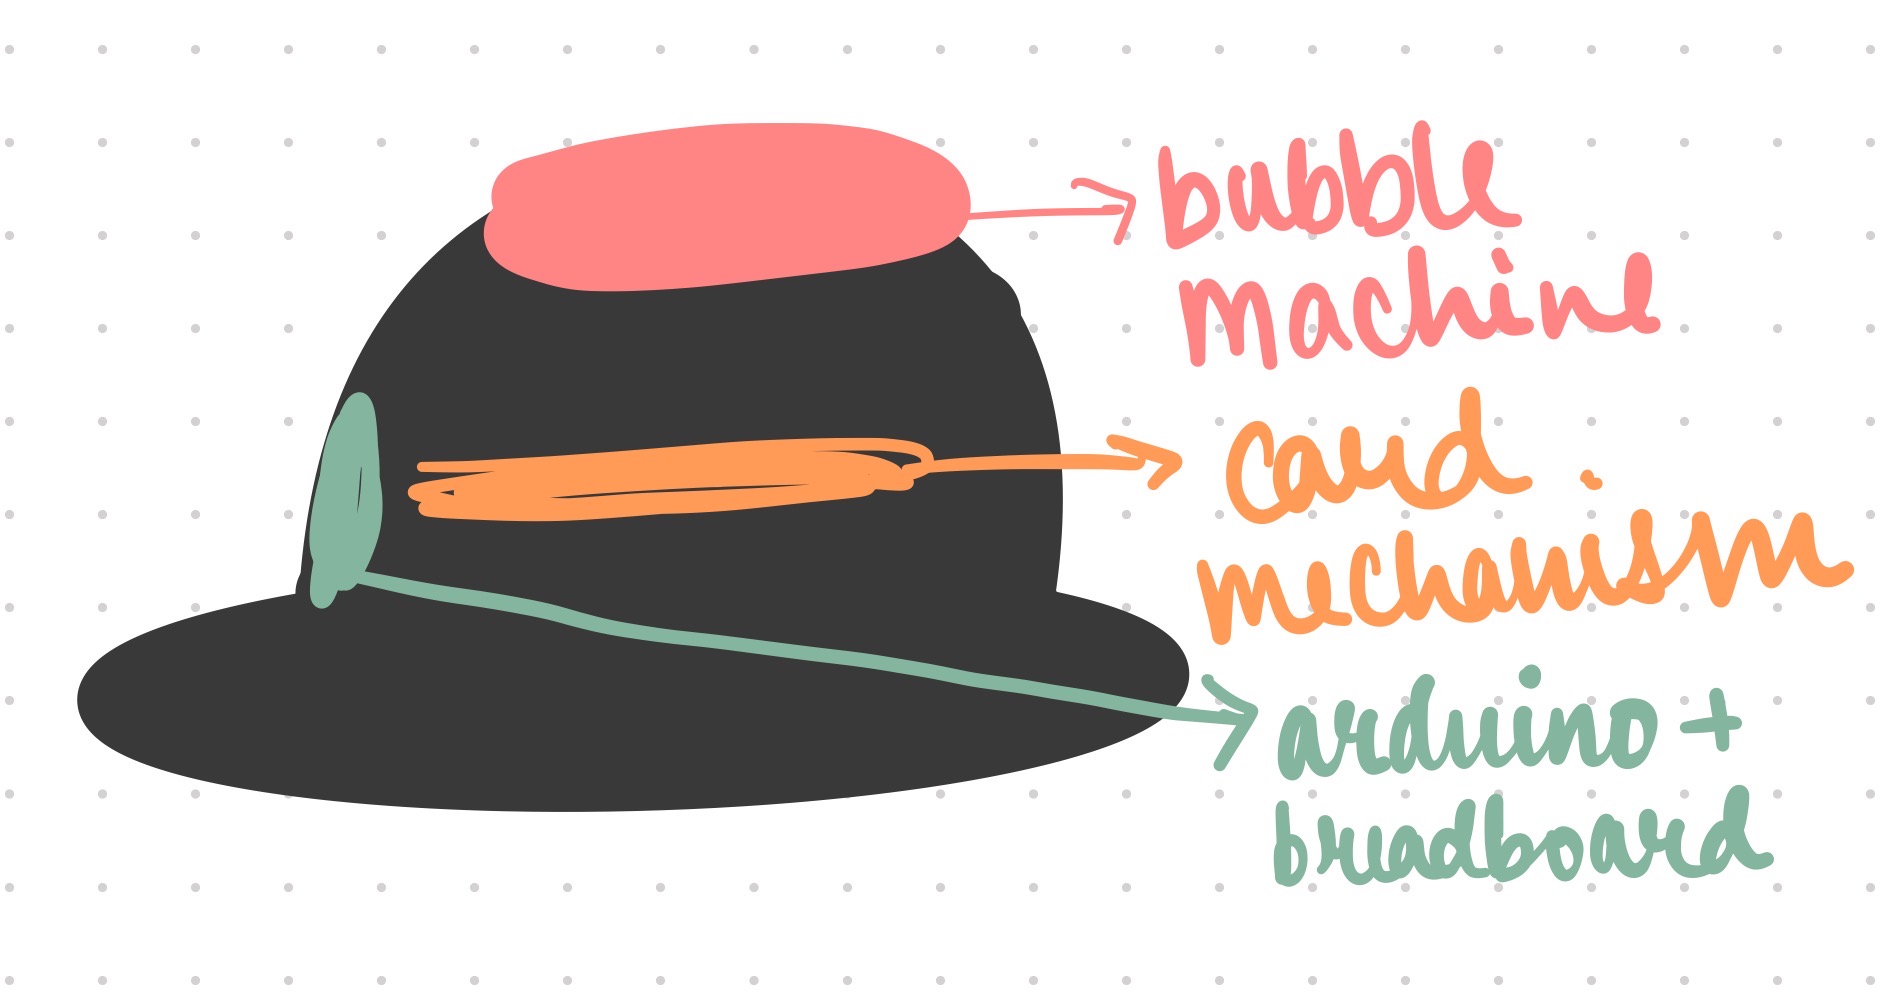 bubble
machine
card
mechanism
arduino +
breadboard